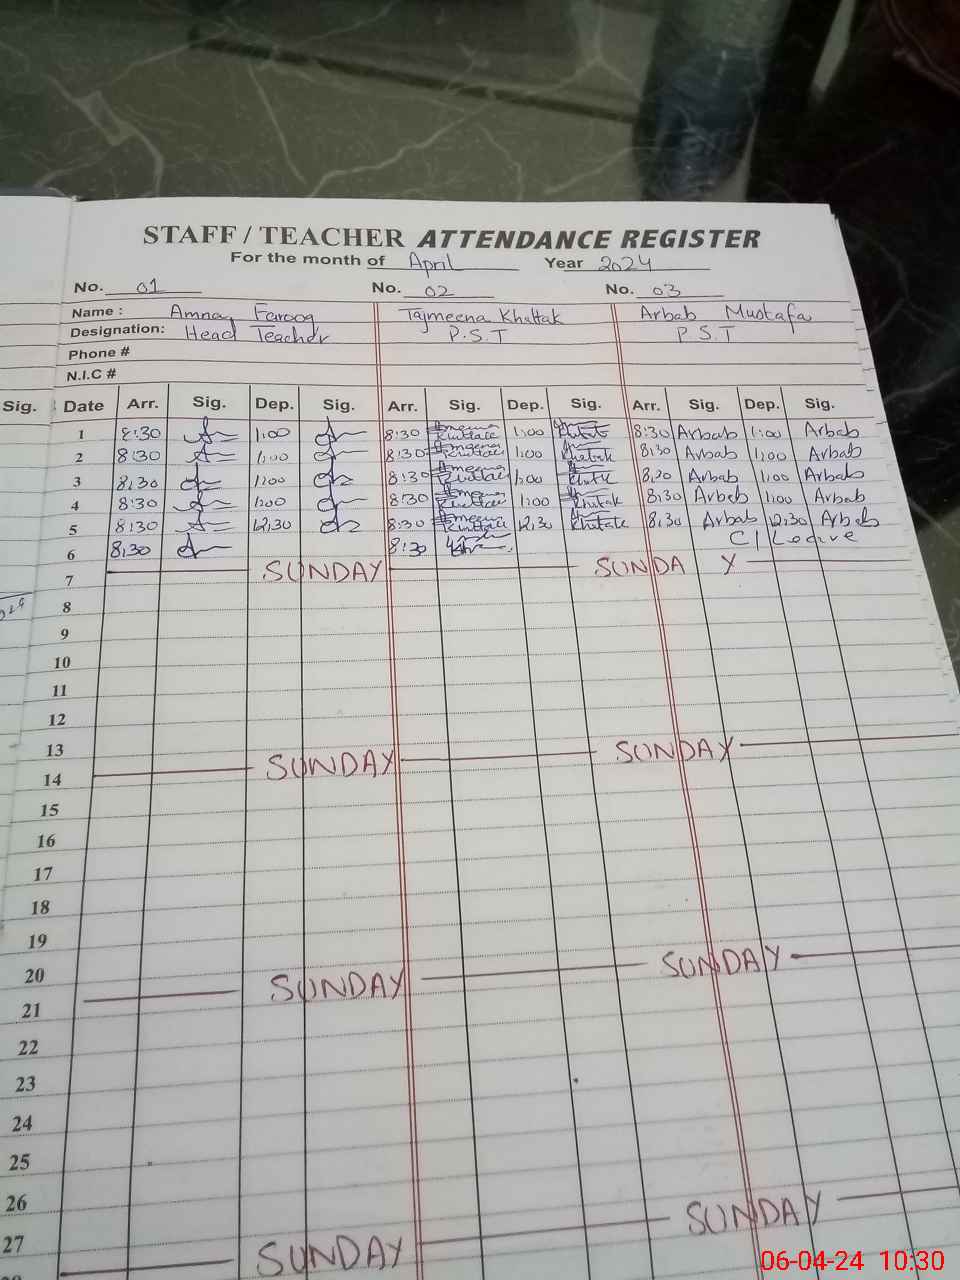 STAFF / TEACHER ATTENDANCE REGISTER
For the month of April Year 2024
No. 01 No. 02 No. 03
Name : Amna Farooq Tajmeena Khattak Arbab Mustafa
Designation: Head Teacher P.S.T P.S.T
Phone #
N.I.C #
Sig. Date Arr. Sig. Dep. Sig. Arr. Sig. Dep. Sig. Arr. Sig. Dep. Sig.
1 8:30 1:00 8:30 1:00 8:30 Arbab 1:00 Arbab
2 8:30 1:00 8:30 1:00 8:30 Arbab 1:00 Arbab
3 8:30 1:00 8:30 1:00 8:30 Arbab 1:00 Arbab
4 8:30 1:00 8:30 1:00 8:30 Arbab 1:00 Arbab
5 8:30 12:30 8:30 12:30 8:30 Arbab 12:30 Arbab
6 8:30 8:30 C/Leave
7 SUNDAY SUNDAY
8
9
10
11
12
13
14 SUNDAY SUNDAY
15
16
17
18
19
20
21 SUNDAY SUNDAY
22
23
24
25
26
27
SUNDAY SUNDAY
06-04-24 10:30